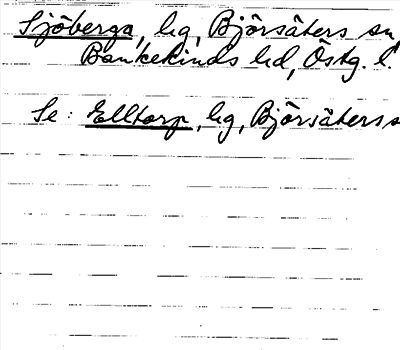 Sjöberga, lg, Björsäters sn,
Bankekinds hd, Östg. l.
Se: Elltorp, lg, Björsäters s